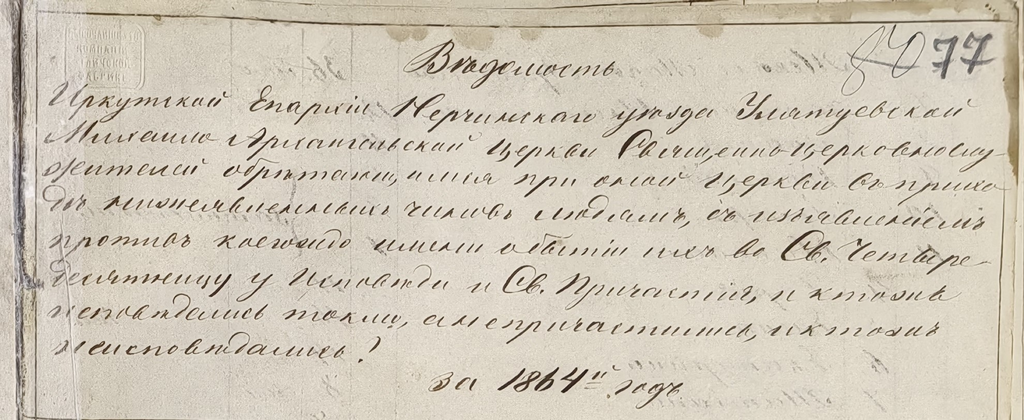 Вѣдомость
80 77
Иркутской Епархіи Нерчинскаго уѣзда Улятуевской
Михаило Архангельской Церкви Священноцерковнослу-
жителей обрѣтающимся при оной Церкви въ прихо-
дѣ нижеявленныхъ чиновъ людямъ, съ изъявленіемъ
противъ коегождо имени о бытіи ихъ во Св. Четыре-
десятницу у Исповѣди и Св. Причастія, и ктожъ
исповѣдались токмо, а не причастились, и ктожъ
неисповѣдались?
за 1864й годъ